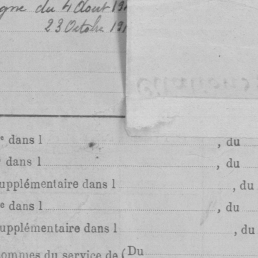 gne du 4 Août 19
23 Octobre 191
e dans l , du
e dans l , du
upplémentaire dans l , du
e dans l , du
upplémentaire dans l , du
ommes du service de (Du